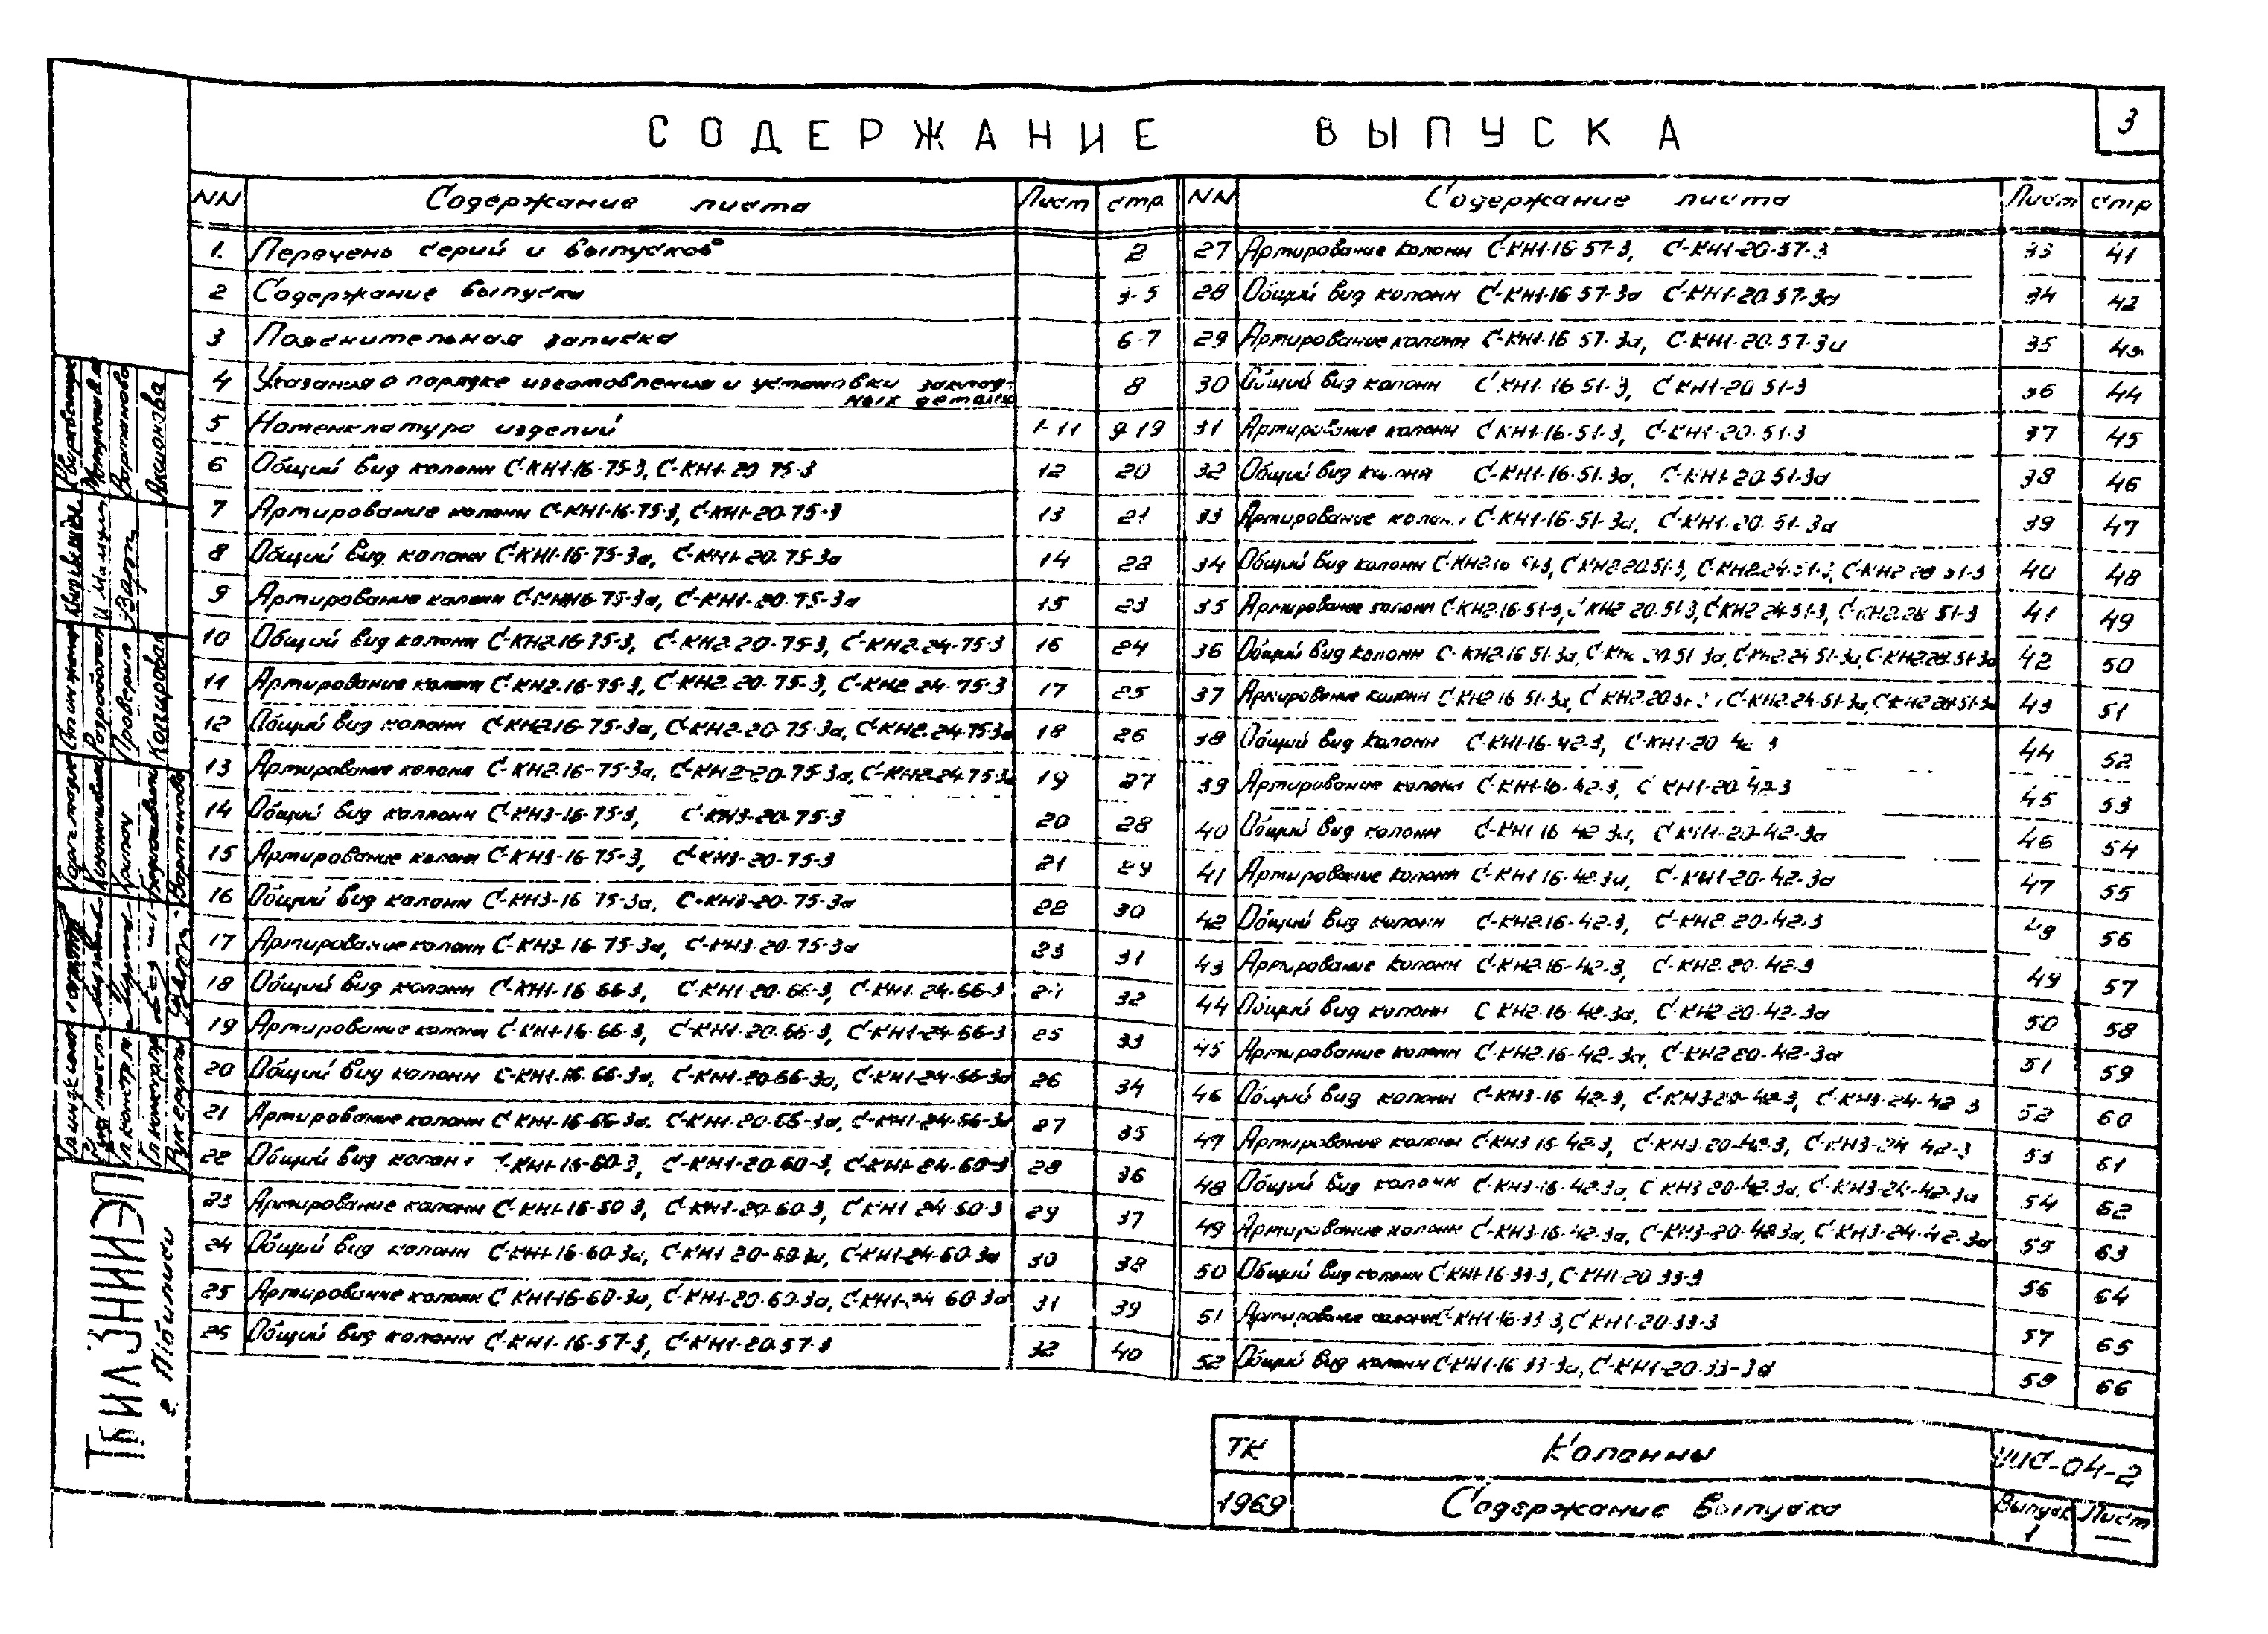 СОДЕРЖАНИЕ ВЫПУСКА
3
NN Содержание листа Лист стр.
1. Перечень серий и выпусков 2
2 Содержание выпуска 3-5
3 Пояснительная записка 6-7
4 Указания о порядке изготовления и установки заклад-
ных деталей 8
5 Номенклатура изделий 1-11 9-19
6 Общий вид колонн С-КН1-16-75-3, С-КН1-20-75-3 12 20
7 Армирование колонн С-КН1-16-75-3, С-КН1-20-75-3 13 21
8 Общий вид колонн С-КН1-16-75-3а, С-КН1-20-75-3а 14 22
9 Армирование колонн С-КН1-16-75-3а, С-КН1-20-75-3а 15 23
10 Общий вид колонн С-КН2-16-75-3, С-КН2-20-75-3, С-КН2-24-75-3 16 24
11 Армирование колонн С-КН2-16-75-3, С-КН2-20-75-3, С-КН2-24-75-3 17 25
12 Общий вид колонн С-КН2-16-75-3а, С-КН2-20-75-3а, С-КН2-24-75-3а 18 26
13 Армирование колонн С-КН2-16-75-3а, С-КН2-20-75-3а, С-КН2-24-75-3а 19 27
14 Общий вид колонн С-КН3-16-75-3, С-КН3-20-75-3 20 28
15 Армирование колонн С-КН3-16-75-3, С-КН3-20-75-3 21 29
16 Общий вид колонн С-КН3-16-75-3а, С-КН3-20-75-3а 22 30
17 Армирование колонн С-КН3-16-75-3а, С-КН3-20-75-3а 23 31
18 Общий вид колонн С-КН1-16-66-3, С-КН1-20-66-3, С-КН1-24-66-3 24 32
19 Армирование колонн С-КН1-16-66-3, С-КН1-20-66-3, С-КН1-24-66-3 25 33
20 Общий вид колонн С-КН1-16-66-3а, С-КН1-20-66-3а, С-КН1-24-66-3а 26 34
21 Армирование колонн С-КН1-16-66-3а, С-КН1-20-66-3а, С-КН1-24-66-3а 27 35
22 Общий вид колонн С-КН1-16-60-3, С-КН1-20-60-3, С-КН1-24-60-3 28 36
23 Армирование колонн С-КН1-16-60-3, С-КН1-20-60-3, С-КН1-24-60-3 29 37
24 Общий вид колонн С-КН1-16-60-3а, С-КН1-20-60-3а, С-КН1-24-60-3а 30 38
25 Армирование колонн С-КН1-16-60-3а, С-КН1-20-60-3а, С-КН1-24-60-3а 31 39
26 Общий вид колонн С-КН1-16-57-3, С-КН1-20-57-3 32 40
NN Содержание листа Лист стр
27 Армирование колонн С-КН1-16-57-3, С-КН1-20-57-3 33 41
28 Общий вид колонн С-КН1-16-57-3а С-КН1-20-57-3а 34 42
29 Армирование колонн С-КН1-16-57-3а, С-КН1-20-57-3а 35 43
30 Общий вид колонн С-КН1-16-51-3, С-КН1-20-51-3 36 44
31 Армирование колонн С-КН1-16-51-3, С-КН1-20-51-3 37 45
32 Общий вид колонн С-КН1-16-51-3а, С-КН1-20-51-3а 38 46
33 Армирование колонн С-КН1-16-51-3а, С-КН1-20-51-3а 39 47
34 Общий вид колонн С-КН2-16-51-3, С-КН2-20-51-3, С-КН2-24-51-3, С-КН2-28-51-3 40 48
35 Армирование колонн С-КН2-16-51-3, С-КН2-20-51-3, С-КН2-24-51-3, С-КН2-28-51-3 41 49
36 Общий вид колонн С-КН2-16-51-3а, С-КН2-20-51-3а, С-КН2-24-51-3а, С-КН2-28-51-3а 42 50
37 Армирование колонн С-КН2-16-51-3а, С-КН2-20-51-3а, С-КН2-24-51-3а, С-КН2-28-51-3а 43 51
38 Общий вид колонн С-КН1-16-42-3, С-КН1-20-42-3 44 52
39 Армирование колонн С-КН1-16-42-3, С-КН1-20-42-3 45 53
40 Общий вид колонн С-КН1-16-42-3а, С-КН1-20-42-3а 46 54
41 Армирование колонн С-КН1-16-42-3а, С-КН1-20-42-3а 47 55
42 Общий вид колонн С-КН2-16-42-3, С-КН2-20-42-3 48 56
43 Армирование колонн С-КН2-16-42-3, С-КН2-20-42-3 49 57
44 Общий вид колонн С-КН2-16-42-3а, С-КН2-20-42-3а 50 58
45 Армирование колонн С-КН2-16-42-3а, С-КН2-20-42-3а 51 59
46 Общий вид колонн С-КН3-16-42-3, С-КН3-20-42-3, С-КН3-24-42-3 52 60
47 Армирование колонн С-КН3-16-42-3, С-КН3-20-42-3, С-КН3-24-42-3 53 61
48 Общий вид колонн С-КН3-16-42-3а, С-КН3-20-42-3а, С-КН3-24-42-3а 54 62
49 Армирование колонн С-КН3-16-42-3а, С-КН3-20-42-3а, С-КН3-24-42-3а 55 63
50 Общий вид колонн С-КН1-16-33-3, С-КН1-20-33-3 56 64
51 Армирование колонн С-КН1-16-33-3, С-КН1-20-33-3 57 65
52 Общий вид колонн С-КН1-16-33-3а, С-КН1-20-33-3а 58 66
ТбилЗНИИЭП
г. Тбилиси
Разработал
Проверил Варт Вартанова
Копировал Аксионова
Рук группы Варт Вартанова
ТК Колонны ИИС-04-2
1969 Содержание выпуска Выпуск 1 Лист —